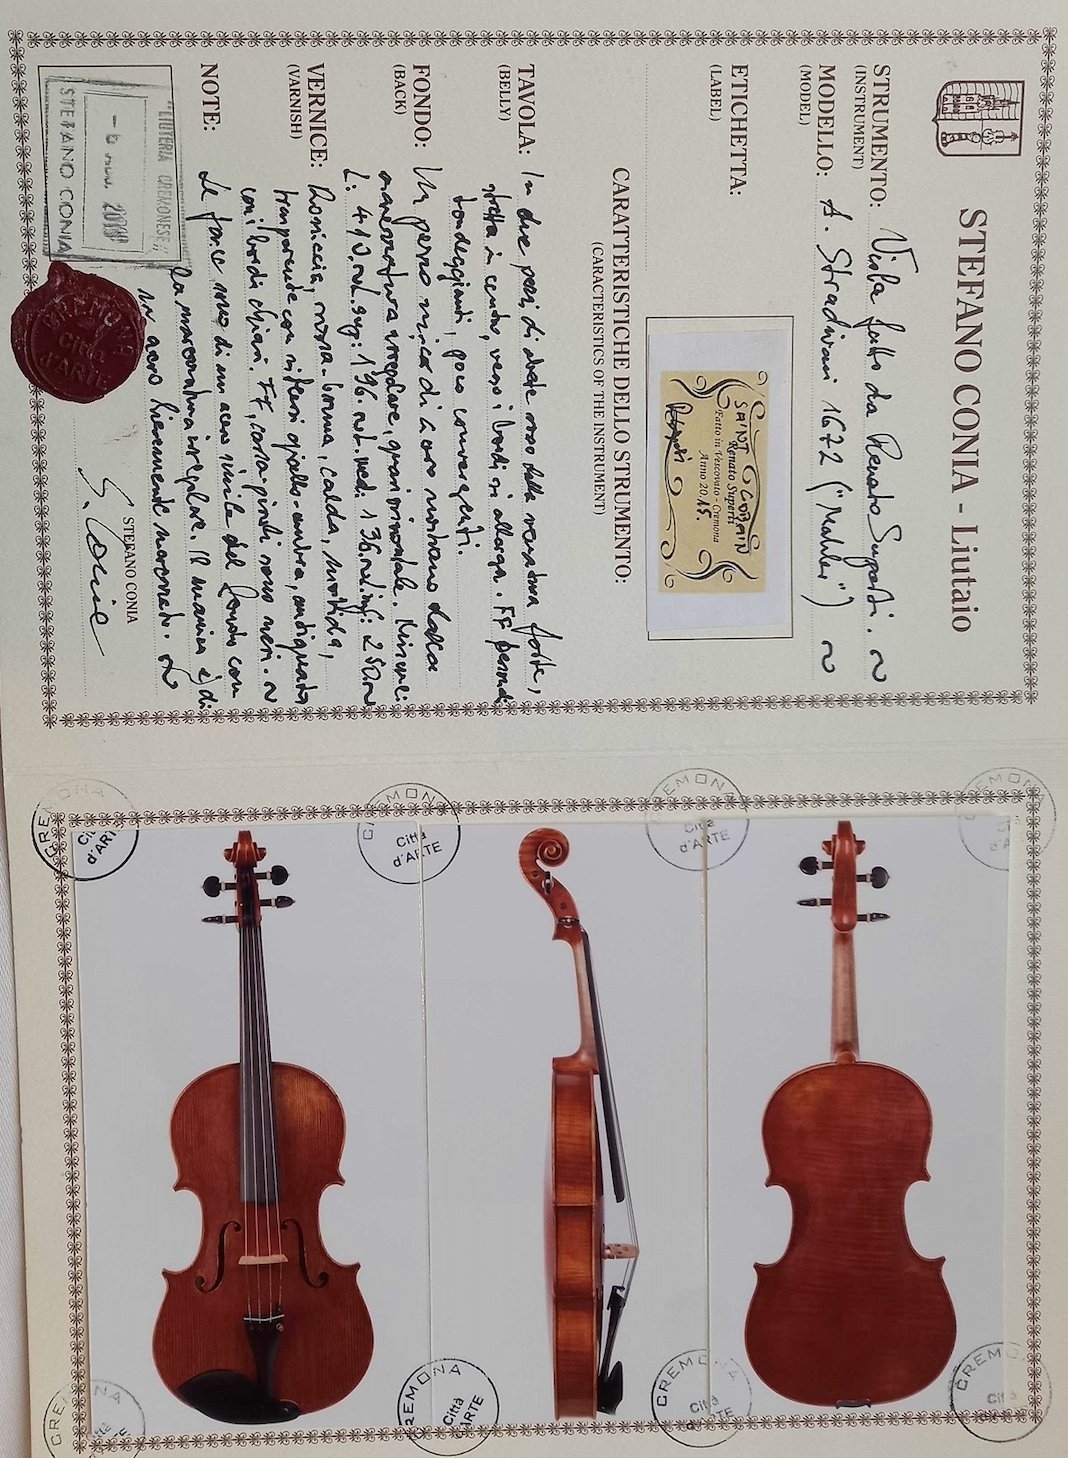 STEFANO CONIA - Liutaio
STRUMENTO: Viola fatta da Renato Superti.
(INSTRUMENT)
MODELLO: A. Stradivari 1672 ("Mahler")
(MODEL)
ETICHETTA:
(LABEL)
SAINT COBAIN
Renato Superti
Fatto in Vescovato - Cremona
Anno 2015.
CARATTERISTICHE DELLO STRUMENTO:
(CARACTERISTICS OF THE INSTRUMENT)
TAVOLA: In due pezzi di abete rosso dalla venatura forte,
(BELLY)
stretta in centro, verso i bordi si allarga. FF
tondeggianti, poco convergenti.
FONDO: Un pezzo unico di acero nostrano dalla
(BACK)
marezzatura irregolare, quasi orizzontale. Misure:
L. 410. sup: 196. med: 136. inf: 250.
VERNICE: Rossiccia, rossa-bruna, calda, morbida,
(VARNISH)
trasparente con riflessi giallo-ambra, antiquata
con i bordi chiari. FF, corta-piroli sono neri.
NOTE: Le fasce sono di un acero simile del fondo con
la marezzatura irregolare. Il manico è di
un acero lievemente marezzato.
"LIUTERIA CREMONESE"
STEFANO CONIA
CREMONA
Città
d'ARTE
STEFANO CONIA
S. Conia
CREMONA
Città
d'ARTE
CREMONA
Città
d'ARTE
CREMONA
Città
d'ARTE
CREMONA
Città
d'ARTE
CREMONA
Città
d'ARTE
CREMONA
Città
d'ARTE
CREMONA
Città
d'ARTE
CREMONA
Città